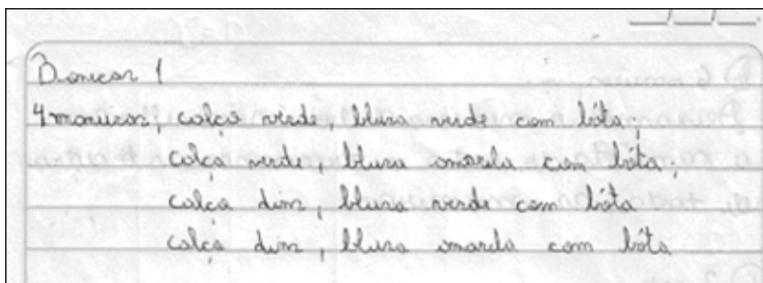 __/__/__.
Bonecas 1
4 maneiras, calça verde, blusa verde com bóta;
calça verde, blusa amarela com bóta;
calça, blusa verde com bóta
calça, blusa amarela com bóta